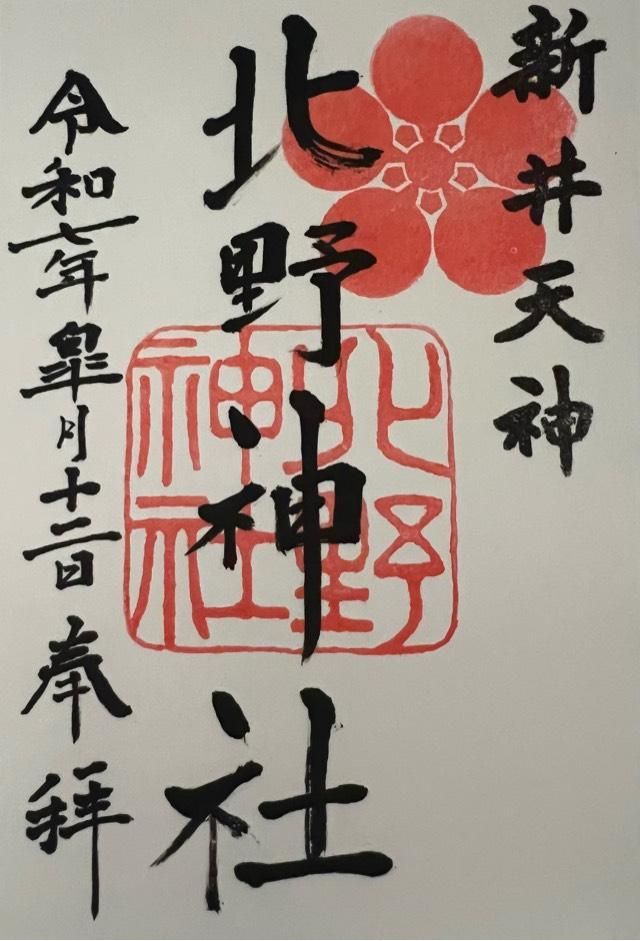 新井天神
北野神社
北野神社
令和七年皐月十二日奉拝